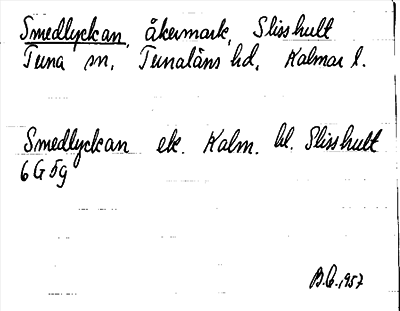 Smedlyckan, åkermark, Slisshult
Tuna sn, Tunaläns hd, Kalmar l.
Smedlyckan ek. Kalm. bl. Slisshult
6G5g
B.G. 1957